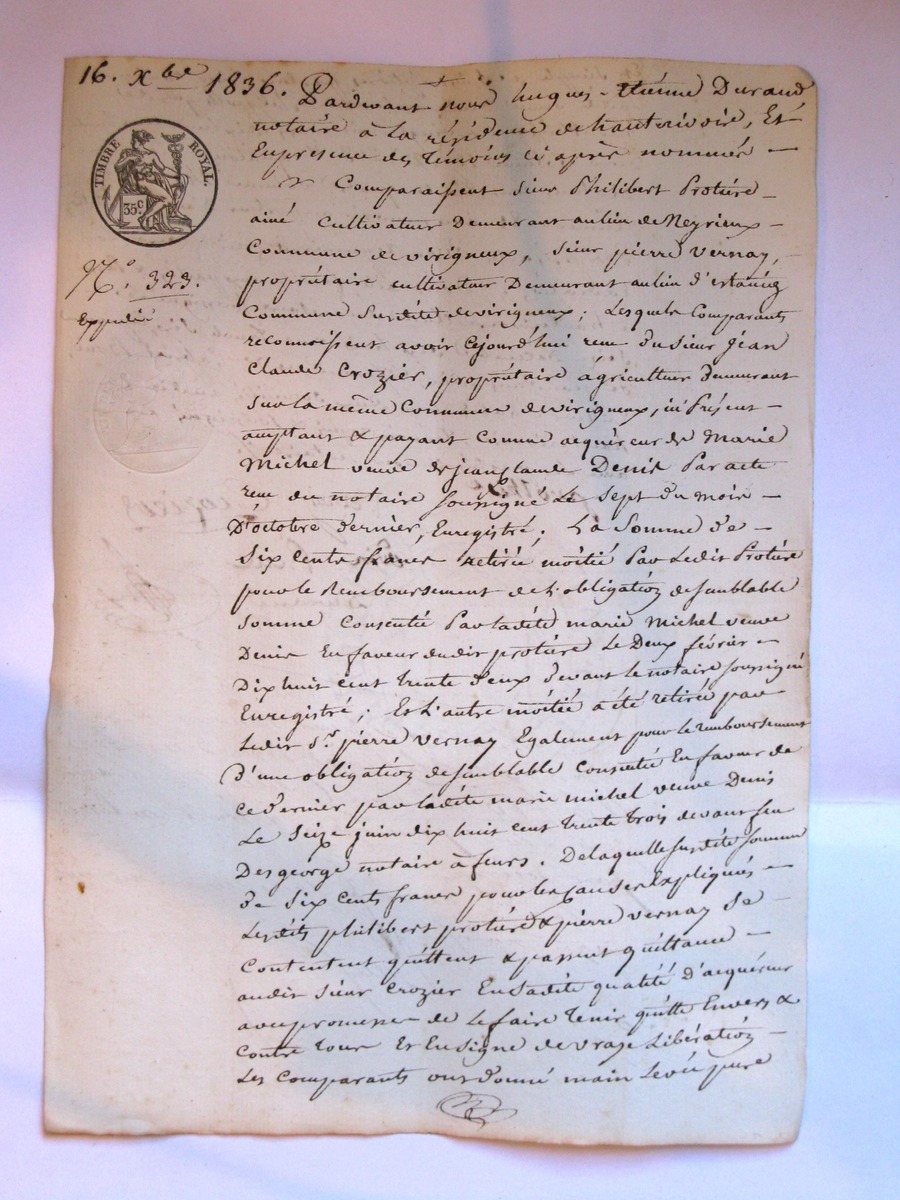 16. Xbre 1836.
TIMBRE ROYAL.
35c
No. 323.
Expedié
Pardevant nous hugues - Etiénne Durand
notaire à la résidence de hauterivoire, Et
En présence des témoins ci après nommés -
Comparaissent sieur Philibert Protiére -
ainé cultivateur Demeurant au lieu de Neyrieux -
Commune de virigneux, sieur pierre Vernay, -
propriétaire cultivateur Demeurant au lieu d'
Commune Susdite de virigneux; Lesquels Comparants
reconnoissent avoir cejourd'hui reçu du sieur Jéan
Claude Crozier, propriétaire àgriculteur Demeurant
sur la même Commune de virigneux, ici Présent -
acceptant & payant Comme acquéreur de Marie
Michel veuve de jean Claude Denis Par acte
reçu du notaire soussigné Le sept du mois -
D'octobre dernier, Enregistré. Là Somme De -
Six Cents francs retirée môitié Par Ledit Protiére
pour le Remboursement de L'obligation de semblable
somme Consentie Par ladite marie Michel veuve
Denis En faveur dudit protiére Le Deux février -
Dix huit cent trente deux devant le notaire soussigné
Enregistré; Et L'autre môitié a été retirée par
Ledit Sr. pierre Vernay Egalement pour le remboursement
D'une obligation de semblable Consentie En faveur de
ce dernier par ladite marie michel veuve Denis
Le Seize juin dix huit cent trente trois devant feu
Desgeorge notaire à feurs. De laquelle susdite somme
de Six Cents francs pour les causes Expliqués -
Lesdits philibert protiére & pierre vernay se -
Contentent quittent & passent quittance -
audit sieur Crozier En sadite qualité D'acquéreur
avec promesse de Le faire tenir quitte Envers &
Contre tous Et En signe de vraye Libération -
Les Comparants ont donné main Levée pure